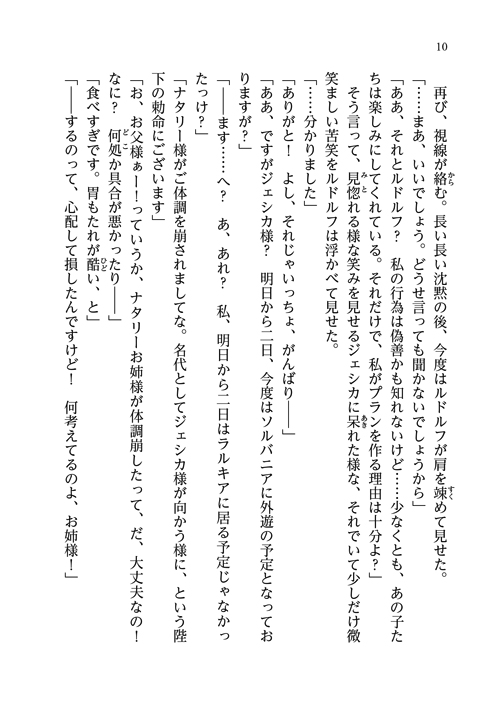 10
再び、視線が絡む。長い長い沈黙の後、今度はルドルフが肩を竦めて見せた。
「……まあ、いいでしょう。どうせ言っても聞かないでしょうから」
「ああ、それとルドルフ？　私の行為は偽善かも知れないけど……少なくとも、あの子た
ちは楽しみにしてくれている。それだけで、私がプランを作る理由は十分よ？」
そう言って、見惚れる様な笑みを見せるジェシカに呆れた様な、それでいて少しだけ微
笑ましい苦笑をルドルフは浮かべて見せた。
「……分かりました」
「ありがと！　よし、それじゃいっちょ、がんばり――」
「ああ、ですがジェシカ様？　明日から二日、今度はソルバニアに外遊の予定となってお
りますが？」
「――ます……へ？　あ、あれ？　私、明日から二日はラルキアに居る予定じゃなかっ
たっけ？」
「ナタリー様がご体調を崩されましてな。名代としてジェシカ様が向かう様に、という陛
下の勅命にございます」
「お、お父様ぁー！っていうか、ナタリーお姉様が体調崩したって、だ、大丈夫なの！
なに？　何処か具合が悪かったり――」
「食べすぎです。胃もたれが酷い、と」
「――するのって、心配して損したんですけど！　何考えてるのよ、お姉様！」